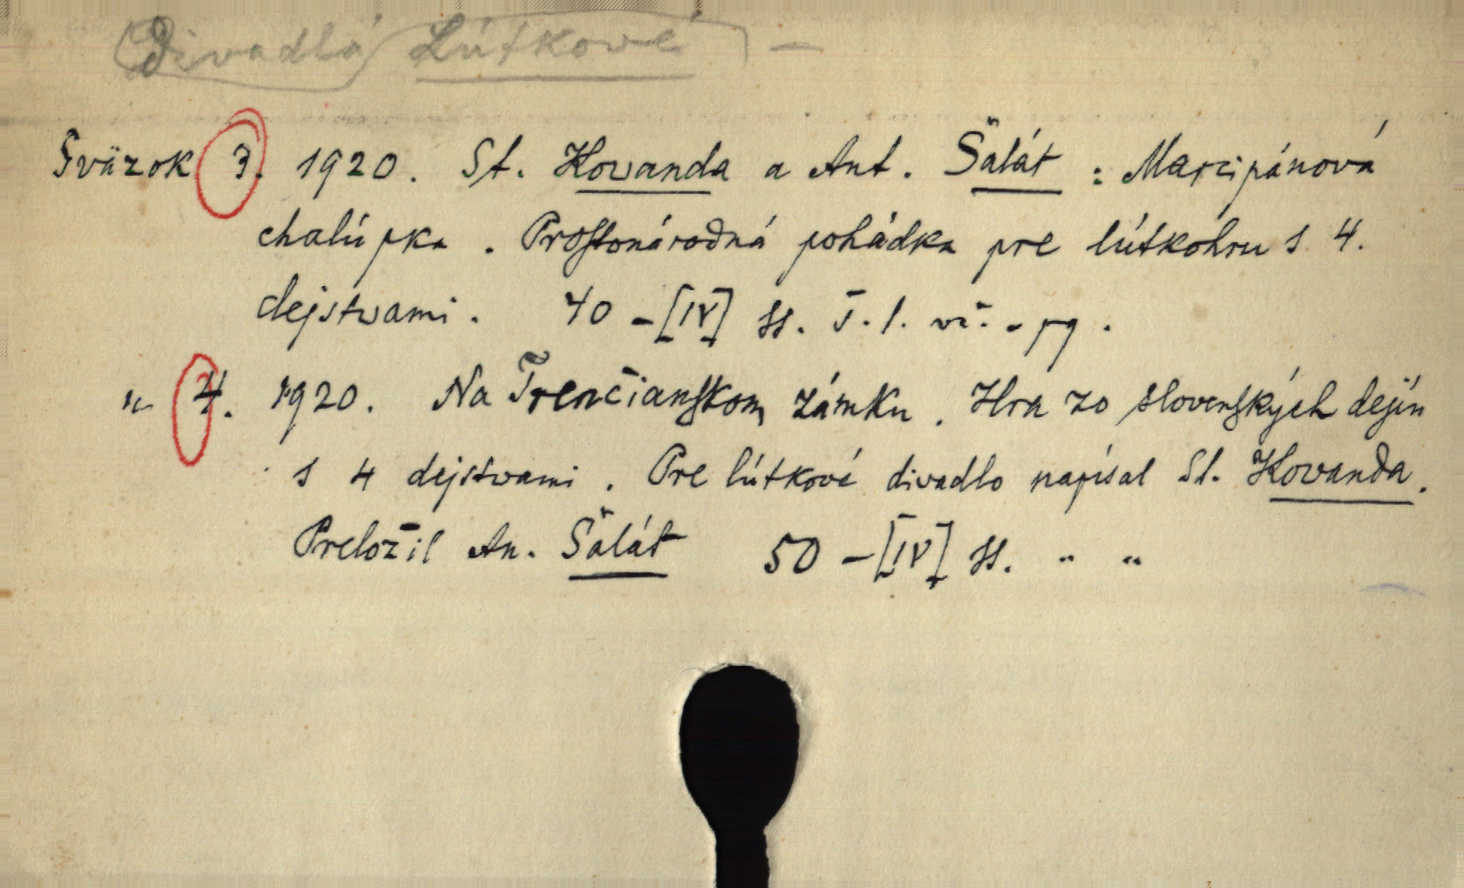 Divadlá Lútkové –
Sväzok 3. 1920. St. Kovanda a Ant. Šalát : Marcipánová
chalúpka . Prostonárodná pohádka pre lútkohru s 4.
dejstvami . 40 – [IV] ss.
„ 4. 1920. Na Trenčianskom zámku . Hra zo slovenských dejín
s 4 dejstvami . Pre lútkové divadlo napísal St. Kovanda .
Preložil An. Šalát 50 – [IV] ss. „ „